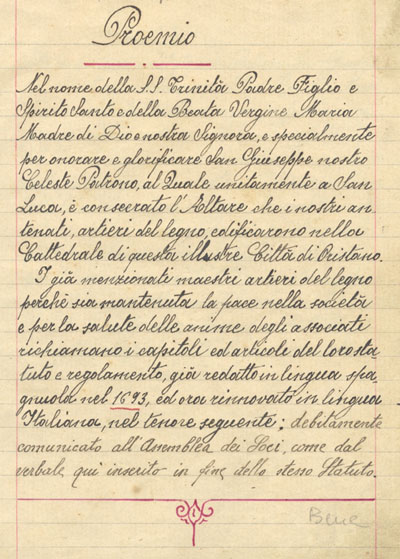 Proemio
Nel nome della S.S. Trinità Padre Figlio e
Spirito Santo e della Beata Vergine Maria
Madre di Dio e nostra Signora, e specialmente
per onorare e glorificare San Giuseppe nostro
Celeste Patrono, al Quale unitamente a San
Luca, è consecrato l'Altare che i nostri an-
tenati, artieri del legno, edificarono nella
Cattedrale di questa illustre Città di Oristano.
I già menzionati maestri artieri del legno
perchè sia mantenuta la pace nella società
e per la salute delle anime degli associati
richiamano i capitoli ed articoli del loro sta
tuto e regolamento, già redatto in lingua spa-
gnuola nel 1693, ed ora rinnovato in lingua
Italiana, nel tenore seguente; debitamente
comunicato all'Assemblea dei Soci, come dal
verbale qui inserito in fine dello stesso Statuto.